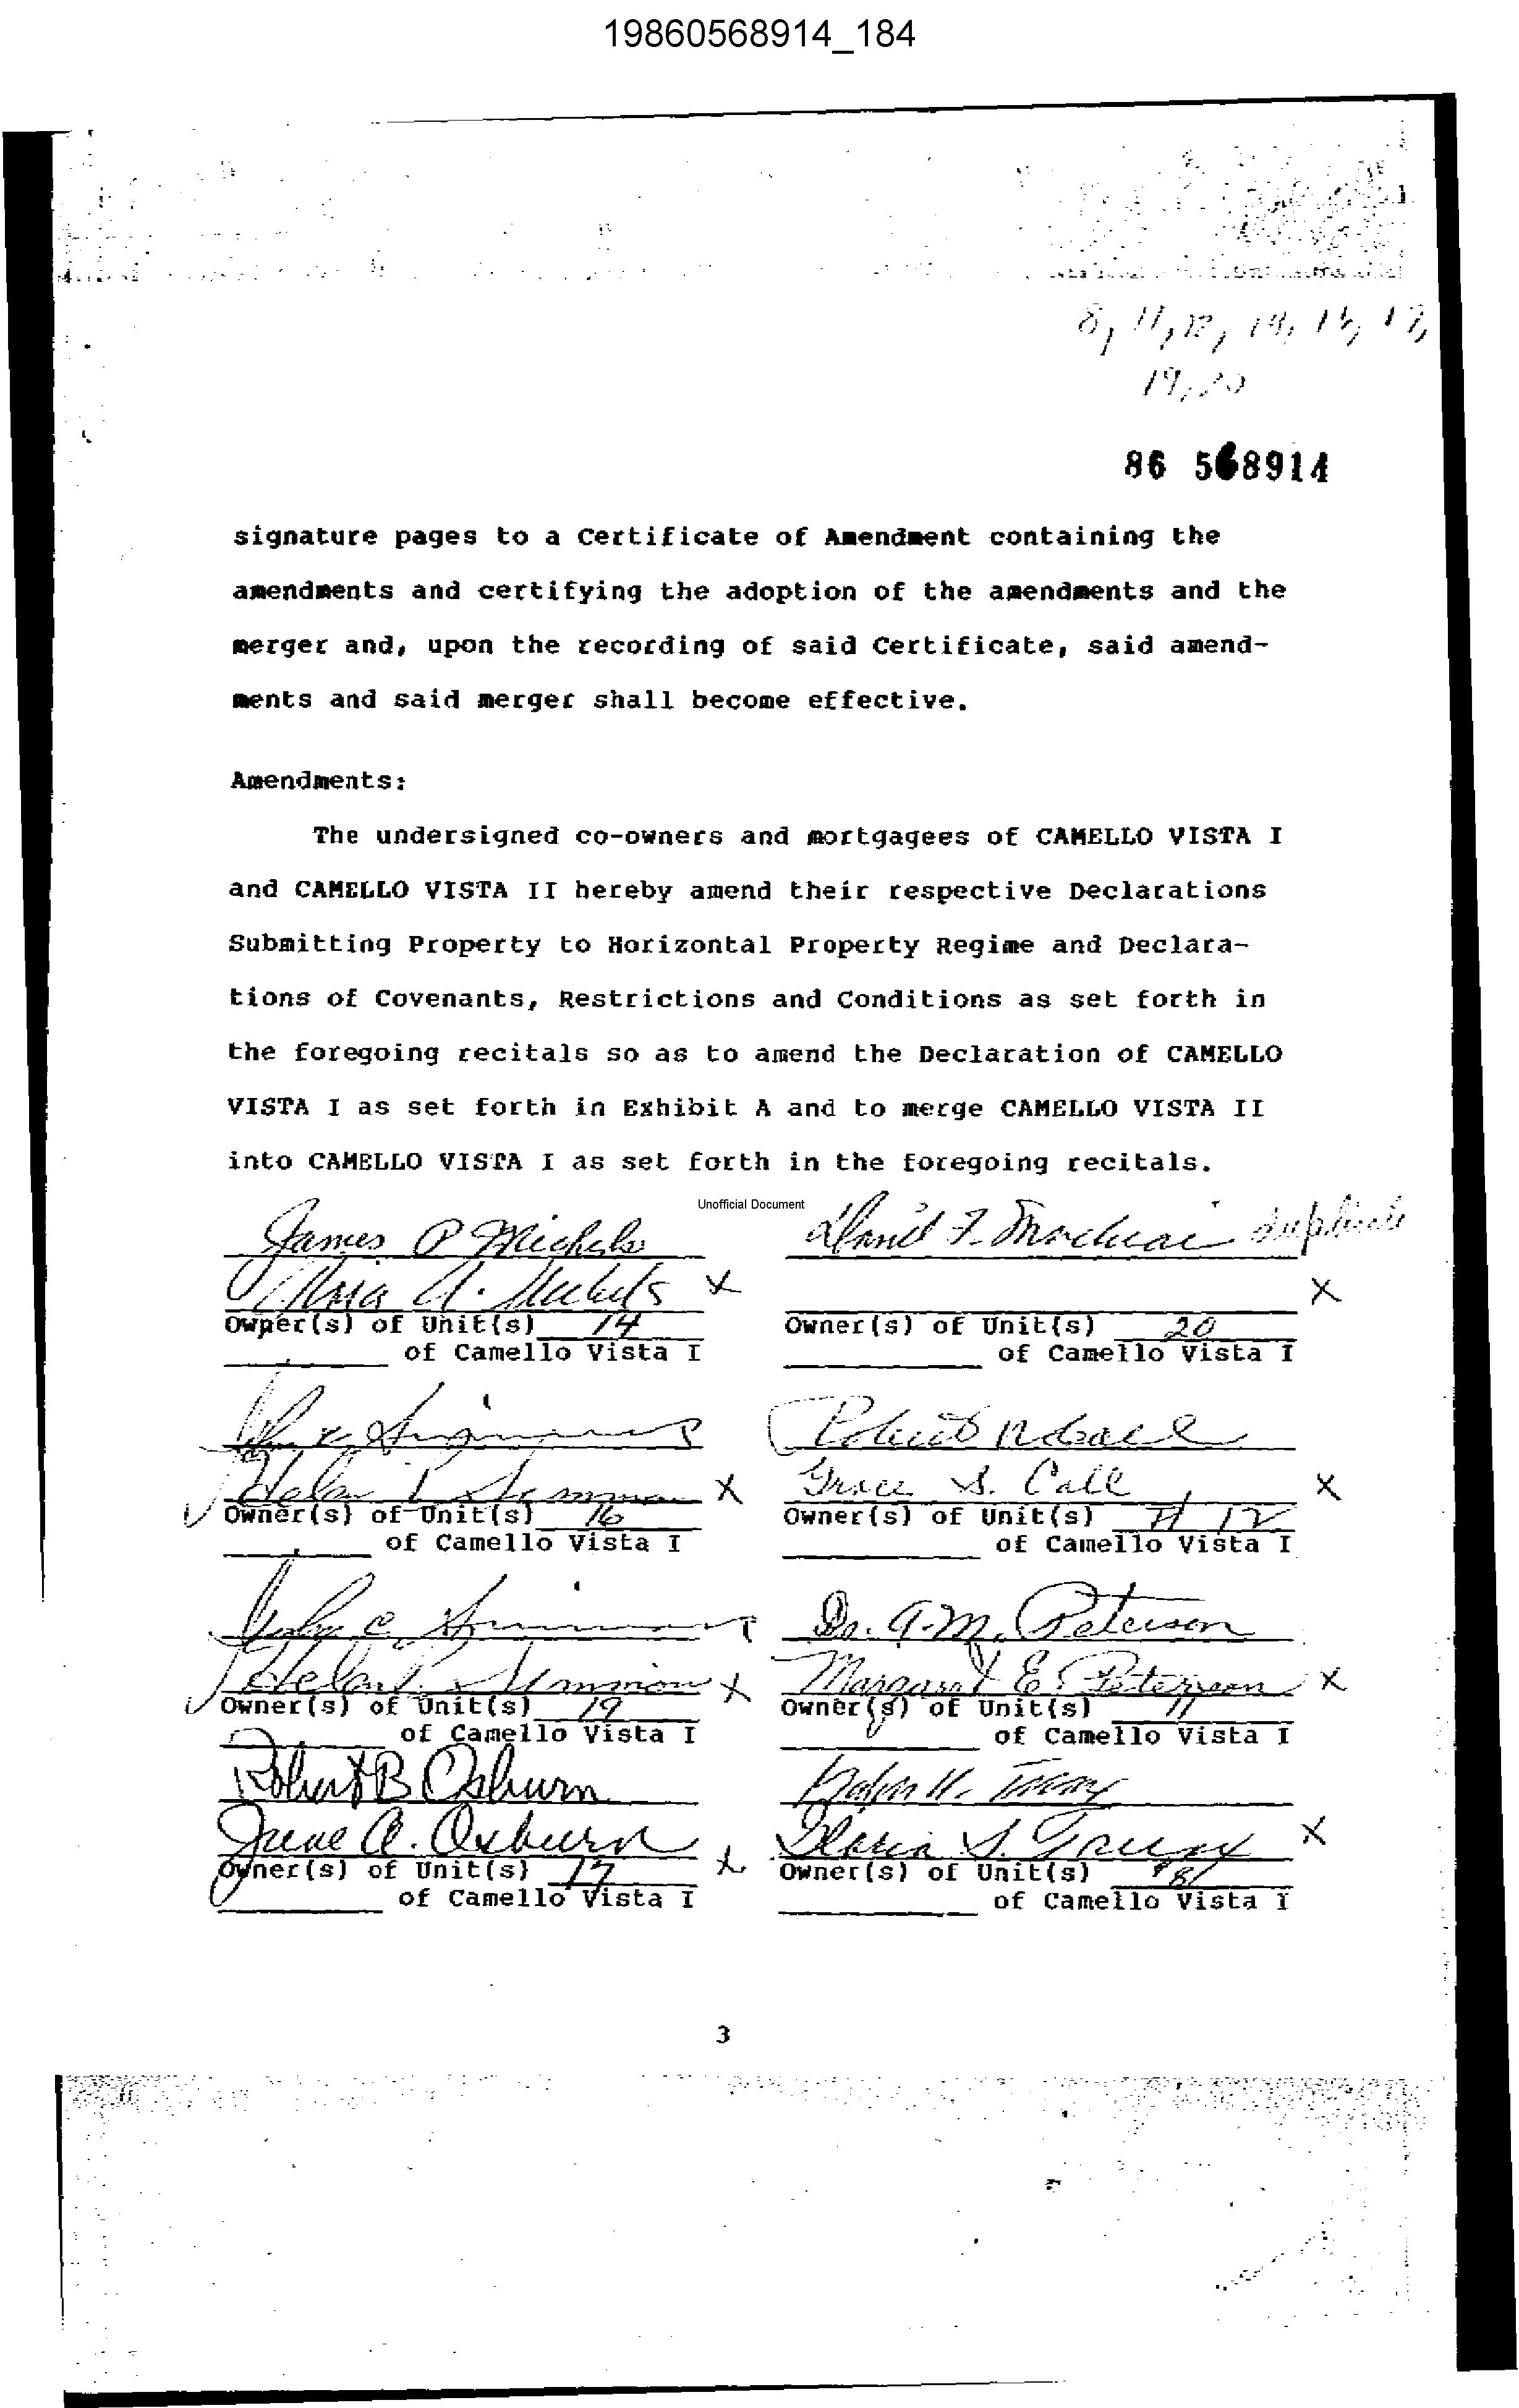 19860568914_184
8, 11, 12, 14, 16, 17,
19, 20
86 568914
signature pages to a Certificate of Amendment containing the
amendments and certifying the adoption of the amendments and the
merger and, upon the recording of said Certificate, said amend-
ments and said merger shall become effective.
Amendments:
The undersigned co-owners and mortgagees of CAMELLO VISTA I
and CAMELLO VISTA II hereby amend their respective Declarations
Submitting Property to Horizontal Property Regime and Declara-
tions of Covenants, Restrictions and Conditions as set forth in
the foregoing recitals so as to amend the Declaration of CAMELLO
VISTA I as set forth in Exhibit A and to merge CAMELLO VISTA II
into CAMELLO VISTA I as set forth in the foregoing recitals.
Unofficial Document
James P Michels
A. Michels X
Owner(s) of Unit(s) 14
of Camello Vista I
F. duplicate
X
Owner(s) of Unit(s) 20
of Camello Vista I
Helen X
Owner(s) of Unit(s) 16
of Camello Vista I
Robert Call
Grace S. Call X
Owner(s) of Unit(s) 12
of Camello Vista I
Helen X
Owner(s) of Unit(s) 19
of Camello Vista I
Dr. A.M. Peterson
Margaret E. Peterson X
Owner(s) of Unit(s) 11
of Camello Vista I
Robert B Osburn
June A. Osburn X
Owner(s) of Unit(s) 17
of Camello Vista I
Ralph
Gloria S. X
Owner(s) of Unit(s) 8
of Camello Vista I
3